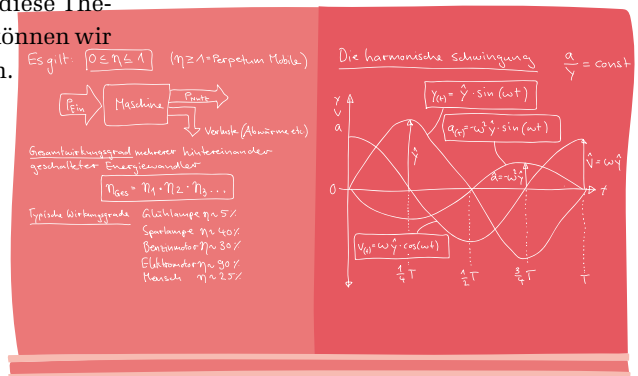 diese The-
können wir
n.
Es gilt: 0 ≤ η ≤ 1 (η ≥ 1 = Perpetum Mobile)
P Ein
Maschine
P Nutz
Verluste (Abwärme etc)
Gesamtwirkungsgrad mehrerer hintereinander
geschalteter Energiewandler
η Ges = η₁ • η₂ • η₃ ...
Typische Wirkungsgrade Glühlampe η ~ 5%
Sparlampe η ~ 40%
Benzinmotor η ~ 30%
Elektromotor η ~ 90%
Mensch η ~ 25%
Die harmonische Schwingung
a/y = const
y(t) = ŷ · sin(ωt)
a(t) = -ω²ŷ · sin(ωt)
y
v
a
ŷ
â = -ω²ŷ
v̂ = ωŷ
0
t
v(t) = ωŷ · cos(ωt)
1/4 T
1/2 T
3/4 T
T